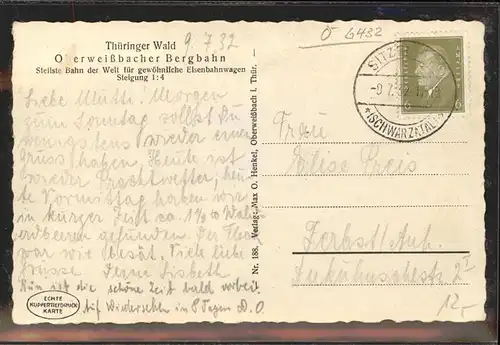 Thüringer Wald
9.7.32
Oberweißbacher Bergbahn
Steilste Bahn der Welt für gewöhnliche Eisenbahnwagen
Steigung 1:4
Liebe Mutti. Morgen
zum Sonntag sollst Du
wenigstens wieder einen
Gruss haben. Heute ist
wieder Prachtwetter, heu-
te Vormittag haben wir
in kurzer Zeit ca. 1 Wald-
erdbeeren gefunden. Der
war wie besät. Viele liebe
Grüsse Deine Lisbeth
Nun ist die schöne Zeit bald vorbei
Auf Wiedersehen in 8 Tagen O.
ECHTE
KUPFERTIEFDRUCK
KARTE
Nr. 188. Verlag: Max O. Henkel, Oberweißbach i. Thür.
6432
SITZE
-9.7.32
(SCHWARZATAL)
6
Frau
Elise Preis
Zerbst/Anh.
12,-